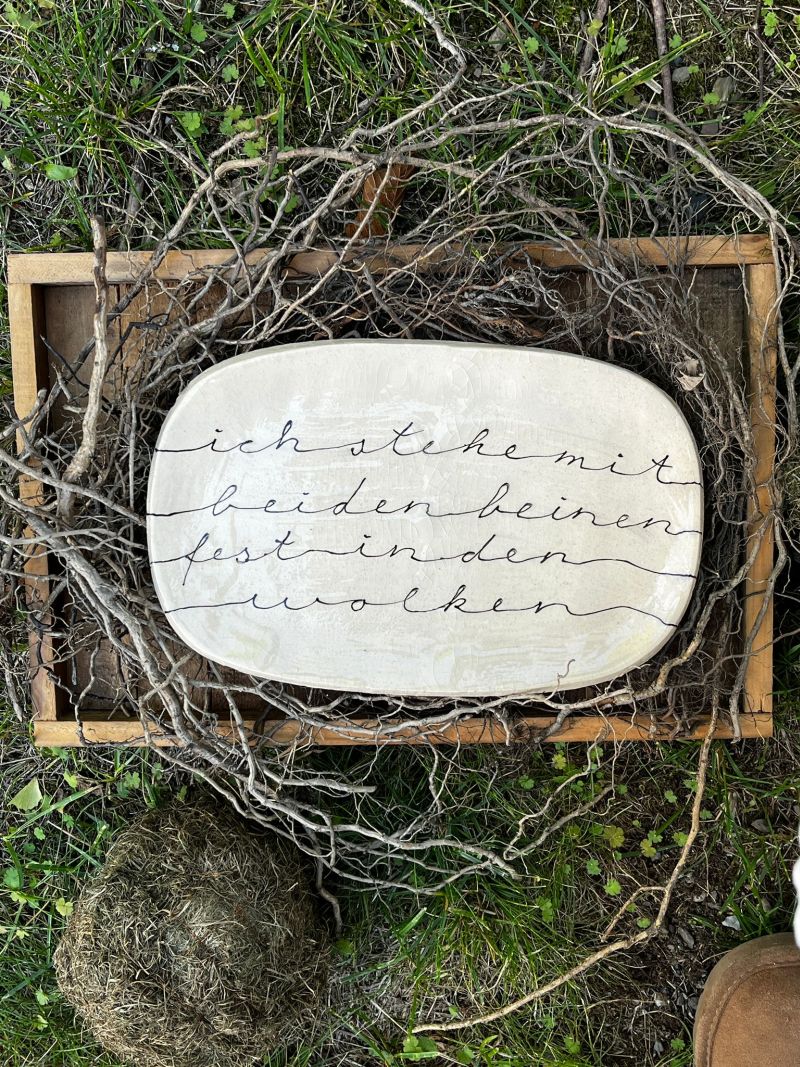 ich stehe mit
beiden beinen
fest in den
wolken